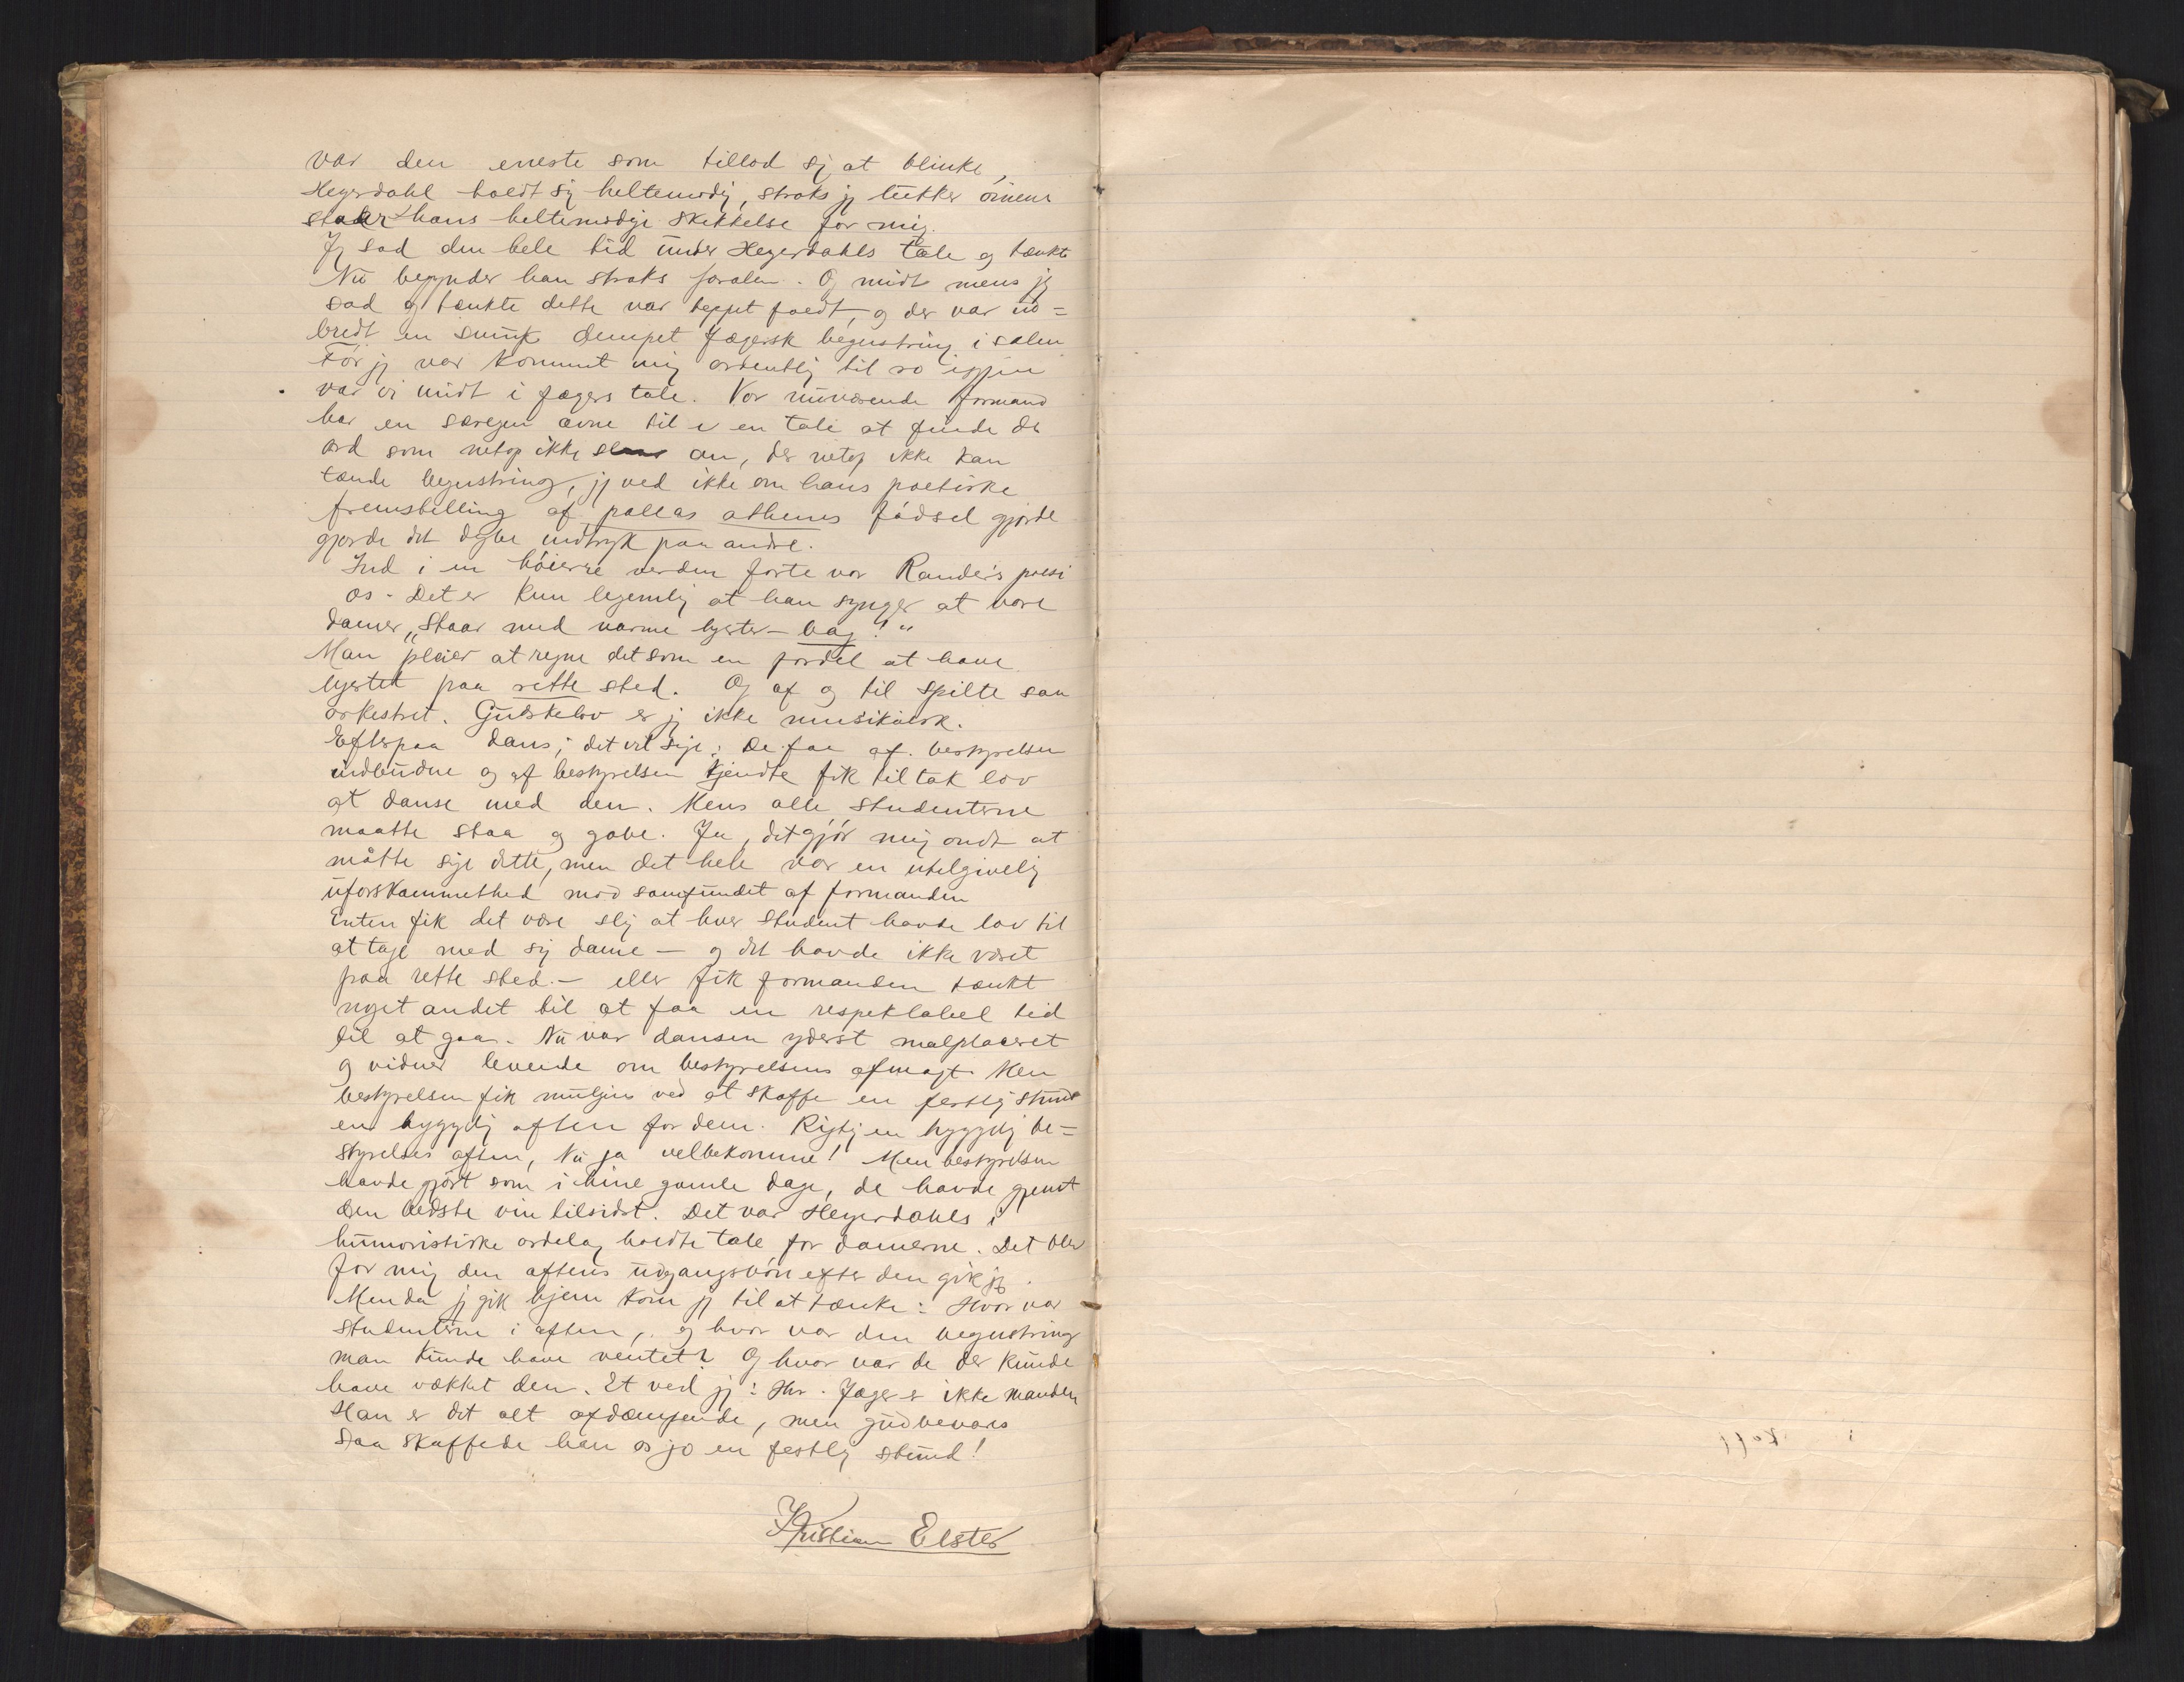 var den eneste som tillod sj at blinke,
Hegerdahl holdt sig heltemodig, straks jj lukker öinene
staar hans heltemodige skikkelse for mig.
Jj sad den hele tid under Hegerdahls tale og tænkte
Nu begynder han straks foralen. Og midt mens jj
sad og tænkte dette var teppet faldt, og der var ud=
bredt en dempet Jægersk begeistring i salen
För jj var kommet mig ordentlig til ro igjen
var vi midt i Jægers tale. Vor nuværende formand
har en særegen ævne til i en tale at finde de
ord som netop ikke slaar an, der netop ikke kan
tænde begeistring, jj ved ikke om hans poetiske
fremstilling af pallas athenes födsel gjorde
gjorde det dybe indtryk paa andre.
Ind i en höierre verden förte vor Randers poesi
os. Det er kun legemlig at han synger at vore
damer „staar med varme hjerter – bag!"
Man pleier at regne det som en fordel at have
hjertet paa rette sted. Og af og til spilte saa
orkestret. Gudskelov er jj ikke musikalsk.
Efterpaa dans; det vil sige: De faa af bestyrelsen
indbudne og af bestyrelsen kjendte fik til tak lov
at danse med den. Mens alle studenterne
maatte staa og gabe. Ja, det gjör mig ondt at
måtte sige dette, men det hele var en utilgivelig
uforskammethed mod samfundet af formanden
Enten fik det være slig at hver student havde lov til
at tage med sig dame – og det havde ikke været
paa rette sted. – eller fik formanden tænkt
noget andet til at faa en respektabel tid
til at gaa. Nu var dansen yderst malplaceret
og vidner levende om bestyrelsens afmagt. Men
bestyrelsen fik muligens ved at skaffe en festlig stund
en hyggelig aften for dem. Rigtig en hyggelig be=
styrelses aften, Nu ja velbekomme! Men bestyrelsen
havde gjört som i hine gamle dage, de havde gjemt
den bedste vin tilsidst. Det var Hegerdahls i
humoristiske ordelag holdte tale for damerne. Det blev
for mig den aftens udgangsbön efter den gik jj.
Men da jj gik hjem kom jj til at tænke: Hvor var
studenterne i aften, og hvor var den begeistring
man kunde have ventet? Og hvor var de der kunde
have vækket den. Et ved jj: Hr. Jæger er ikke manden
Han er det alt afdæmpende, men gudbevares
saa skaffede han os jo en festlig stund!
Kristian Elster